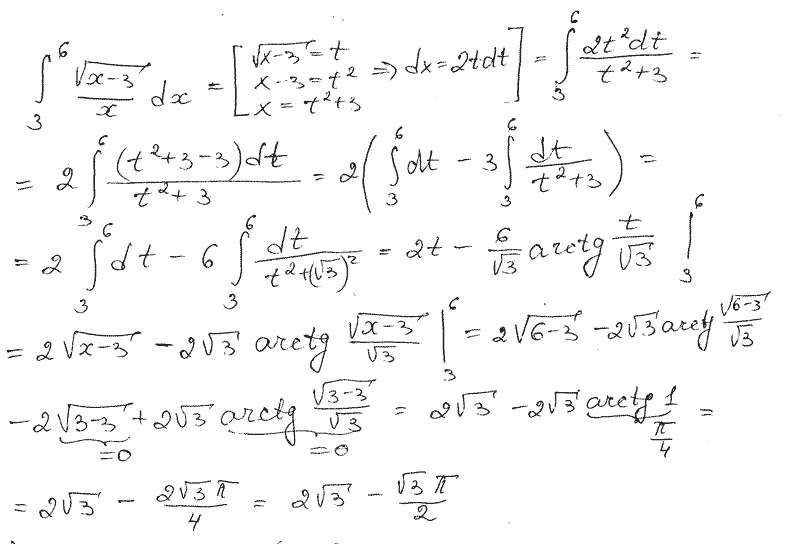 ∫₃⁶ √(x-3)/x dx = [√(x-3) = t; x-3 = t²; x = t²+3 ⇒ dx = 2tdt] = ∫₃⁶ 2t²dt/(t²+3) =
= 2 ∫₃⁶ (t²+3-3)dt/(t²+3) = 2(∫₃⁶ dt - 3∫₃⁶ dt/(t²+3)) =
= 2 ∫₃⁶ dt - 6 ∫₃⁶ dt/(t²+(√3)²) = 2t - 6/√3 arctg t/√3 |₃⁶
= 2√(x-3) - 2√3 arctg √(x-3)/√3 |₃⁶ = 2√(6-3) - 2√3 arctg √(6-3)/√3
-2√(3-3) + 2√3 arctg √(3-3)/√3 = 2√3 - 2√3 arctg 1 =
=0 =0 π/4
= 2√3 - 2√3π/4 = 2√3 - √3π/2